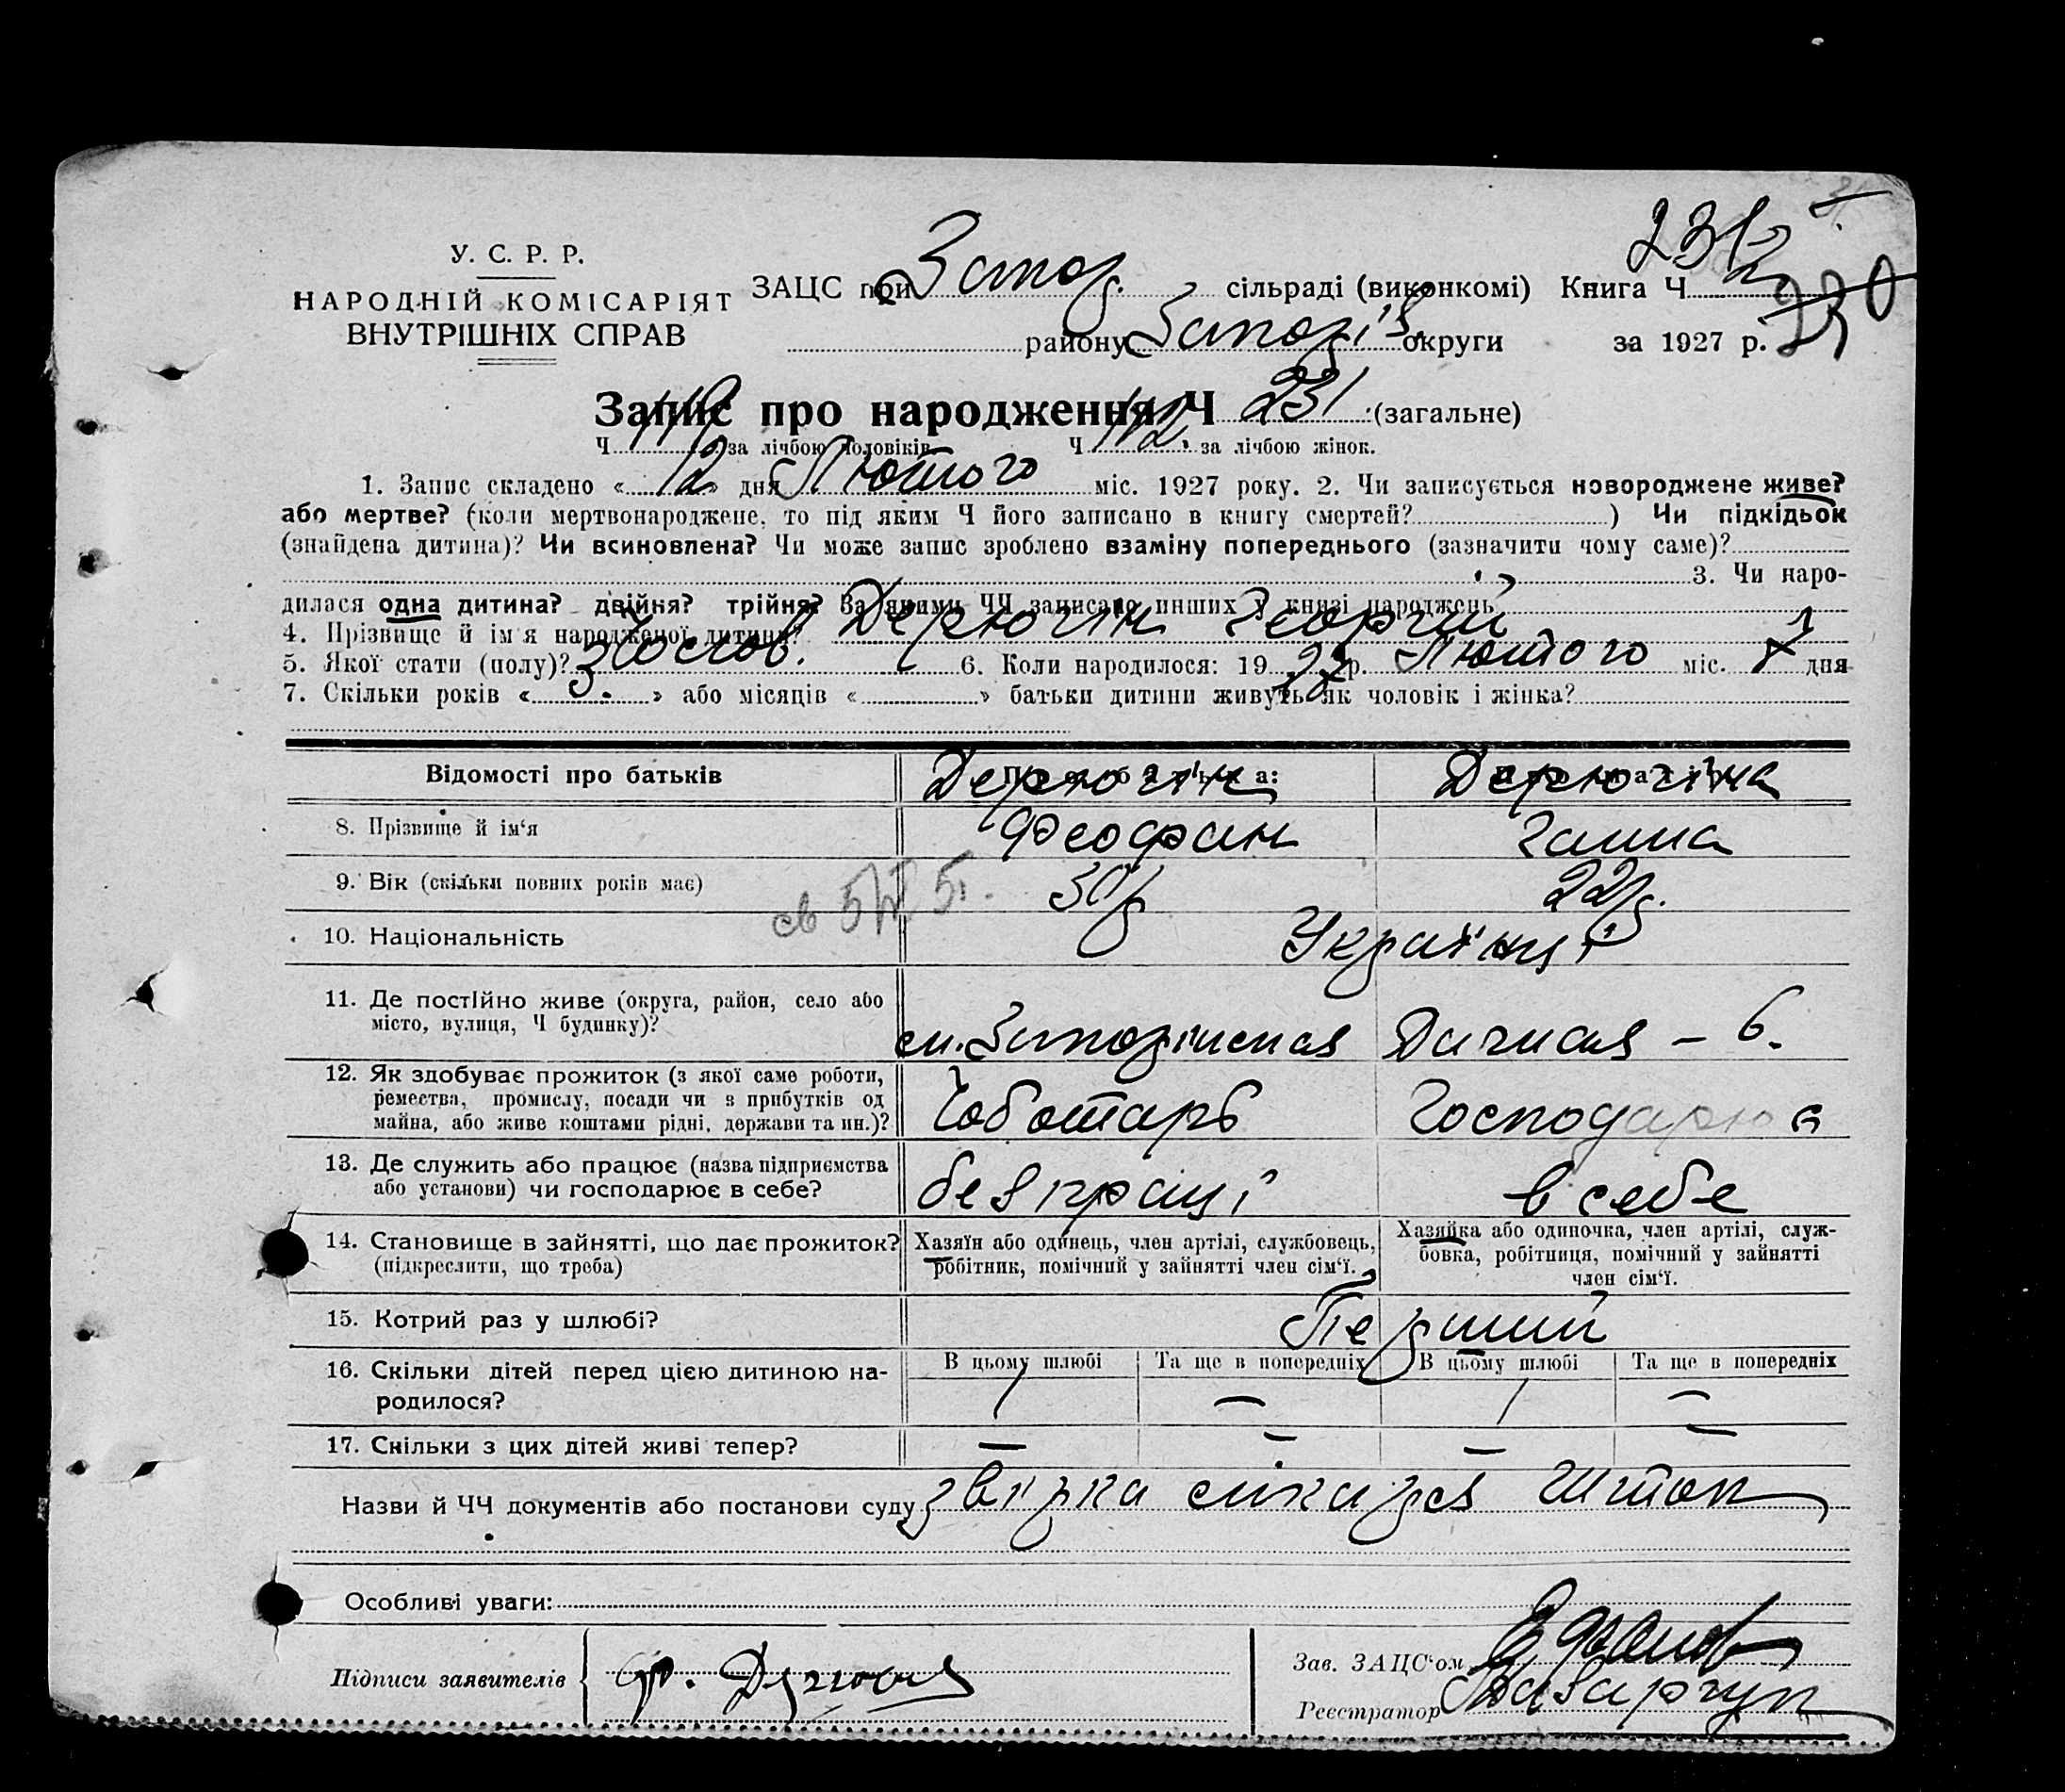 У. С. Р. Р.
НАРОДНІЙ КОМІСАРІЯТ
ВНУТРІШНІХ СПРАВ
ЗАЦС при Запор. сільраді (виконкомі) Книга Ч. 2
району Запоріз. округи за 1927 р.
Запис про народження Ч 231 (загальне)
Ч 119 за лічбою чоловіків. Ч 112. за лічбою жінок.
1. Запис складено « 12 » дня Лютого міс. 1927 року. 2. Чи записується новороджене живе?
або мертве? (коли мертвонароджене, то під яким Ч його записано в книгу смертей? ) Чи підкідьок
(знайдена дитина)? Чи всиновлена? Чи може запис зроблено взаміну попереднього (зазначити чому саме)?
3. Чи наро-
дилася одна дитина? двійня? трійня? За якими ЧЧ записано инших у книзі народжень?
4. Прізвище й ім'я народженої дитини? Дерюгін Георгій
5. Якої стати (полу)? Чолов. 6. Коли народилося: 19 27 р. Лютого міс. 1 дня
7. Скільки років « 3. » або місяців « » батьки дитини живуть як чоловік і жінка?
Відомості про батьків
Дерюгін Дерюгіна
8. Прізвище й ім'я Феофан Ганна
9. Вік (скільки повних років має) 30 р 22 р.
10. Національність Українці
11. Де постійно живе (округа, район, село або
місто, вулиця, Ч будинку)? Дачная – 6.
12. Як здобуває прожиток (з якої саме роботи,
ремества, промислу, посади чи з прибутків од
майна, або живе коштами рідні, держави та ин.)? Чоботарь Господарює
13. Де служить або працює (назва підприємства
або установи) чи господарює в себе? без праці в себе
14. Становище в зайнятті, що дає прожиток?
(підкреслити, що треба)
Хазяїн або одинець, член артілі, службовець,
робітник, помічний у зайнятті член сім'ї.
Хазяйка або одиночка, член артілі, служ-
бовка, робітниця, помічний у зайнятті
член сім'ї.
15. Котрий раз у шлюбі? Перший
16. Скільки дітей перед цією дитиною на-
родилося?
В цьому шлюбі Та ще в попередніх В цьому шлюбі Та ще в попередніх
1 — 1 —
17. Скільки з цих дітей живі тепер? — — — —
Назви й ЧЧ документів або постанови суду
Особливі уваги:
Підписи заявителів
Зав. ЗАЦС'ом
Реєстратор